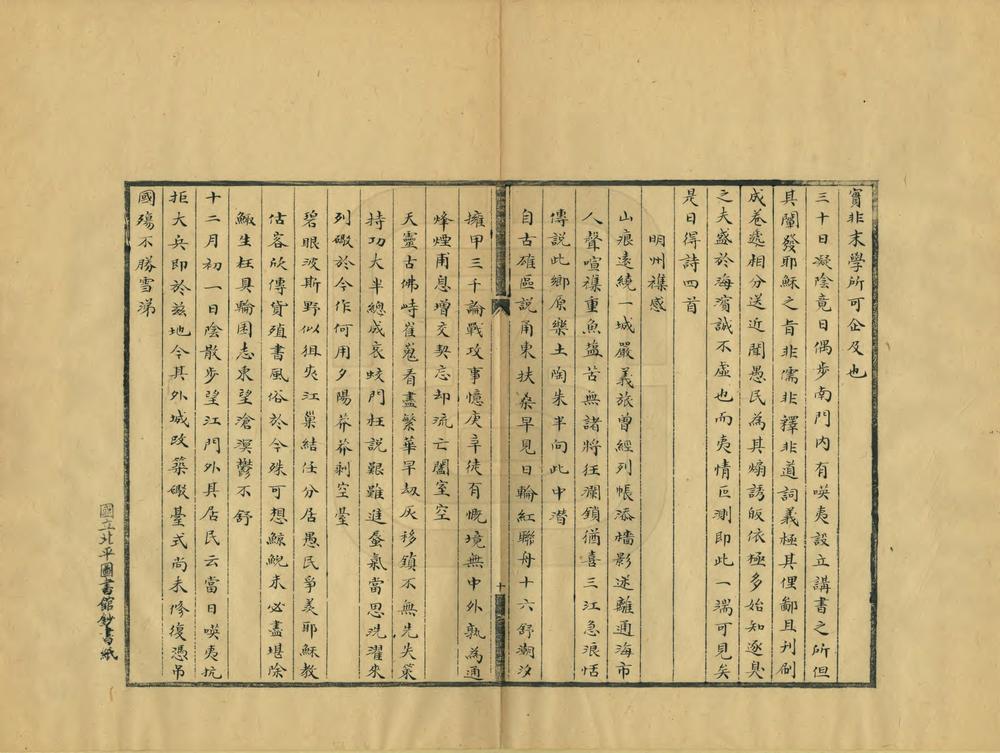 實非末學所可企及也
三十日凝陰竟日偶步南門內有暎夷設立講書之所但
其闡發耶穌之旨非儒非釋非道詞義極其俚鄙且刊刷
成卷遞相分送近聞愚民為其煽誘皈依極多始知逐臭
之夫盛於海濱誠不虛也而夷情叵測即此一端可見矣
是日得詩四首
明州襍感
山痕遠繞一城嚴義旅曾經列帳添檣影迷離通海市
人聲喧襍重魚鹽苦無諸將狂瀾鎖猶喜三江急浪恬
傳說此鄉原樂土陶朱半向此中潛
自古確區說甬東扶桑早見日輪紅聯舟十六舒潮汐
擁甲三千論戰攻事憶庚辛徒有慨境無中外孰為通
烽煙甫息增交契忘却流亡闔室空
天靈古佛峙崔嵬看盡繁華早劫灰移鎮不無先失策
持功大半總成哀蛟門枉說艱難進蜃氣當思洗濯來
列礮於今作何用夕陽莽莽剩空臺
碧眼波斯野似狙夾江巢結任分居愚民爭羨耶穌教
估客欣傳貨殖書風俗於今殊可想鯨鯢未必盡堪除
鯫生枉具輪囷志東望滄溟鬱不舒
十二月初一日陰散步望江門外其居民云當日暎夷抗
拒大兵即於茲地今其外城改築礮臺式尚未修復憑吊
國殤不勝雪涕
十
國立北平圖書館鈔書紙